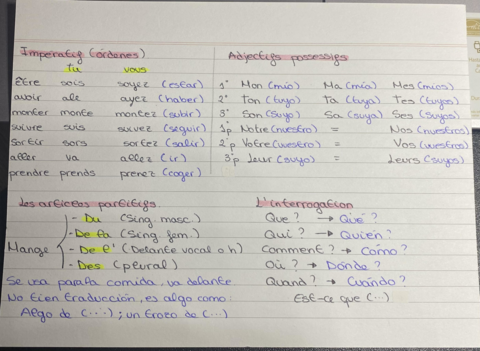 Imperatif (órdenes)
tu vous
être sois soyez (estar)
avoir aie ayez (haber)
monter monte montez (subir)
suivre suis suivez (seguir)
sortir sors sortez (salir)
aller va allez (ir)
prendre prends prenez (coger)
Adjectifs possessifs
1º Mon (mío) Ma (mía) Mes (míos)
2º Ton (tuyo) Ta (tuya) Tes (tuyos)
3º Son (suyo) Sa (suya) Ses (suyos)
1ºp Notre (nuestro) = Nos (nuestros)
2ºp Votre (vuestro) = Vos (vuestros)
3ºp Leur (suyo) = Leurs (suyos)
Les articles partitifs
Mange
- Du (sing. masc.)
- De la (sing. fem.)
- De l' (Delante vocal o h)
- Des (plural)
Se usa para la comida, va delante
No tien traducción, es algo como:
Algo de (...); un trozo de (...)
L'interrogation
Que? → Qué?
Qui? → Quién?
Comment? → Cómo?
Où? → Dónde?
Quand? → Cuándo?
Est-ce que (...)